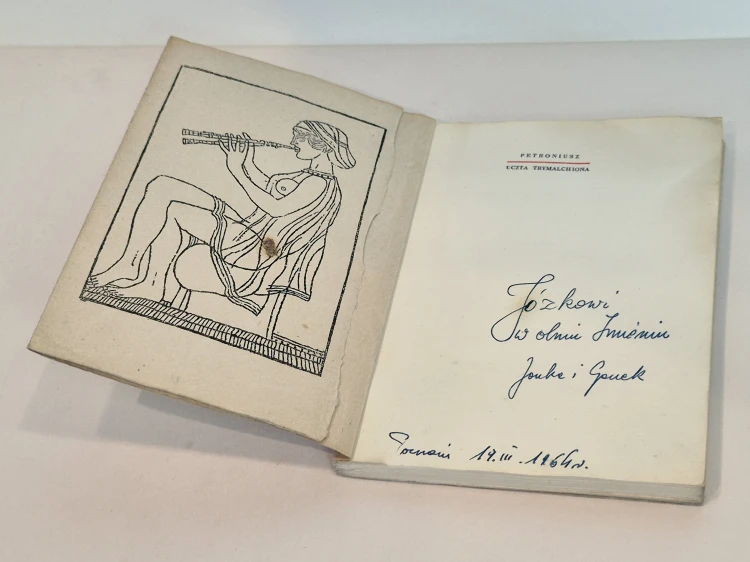 PETRONIUSZ
UCZTA TRYMALCHIONA
Józkowi
w dniu Imienin
Janka i Genek
Poznań 19.III.1964 r.